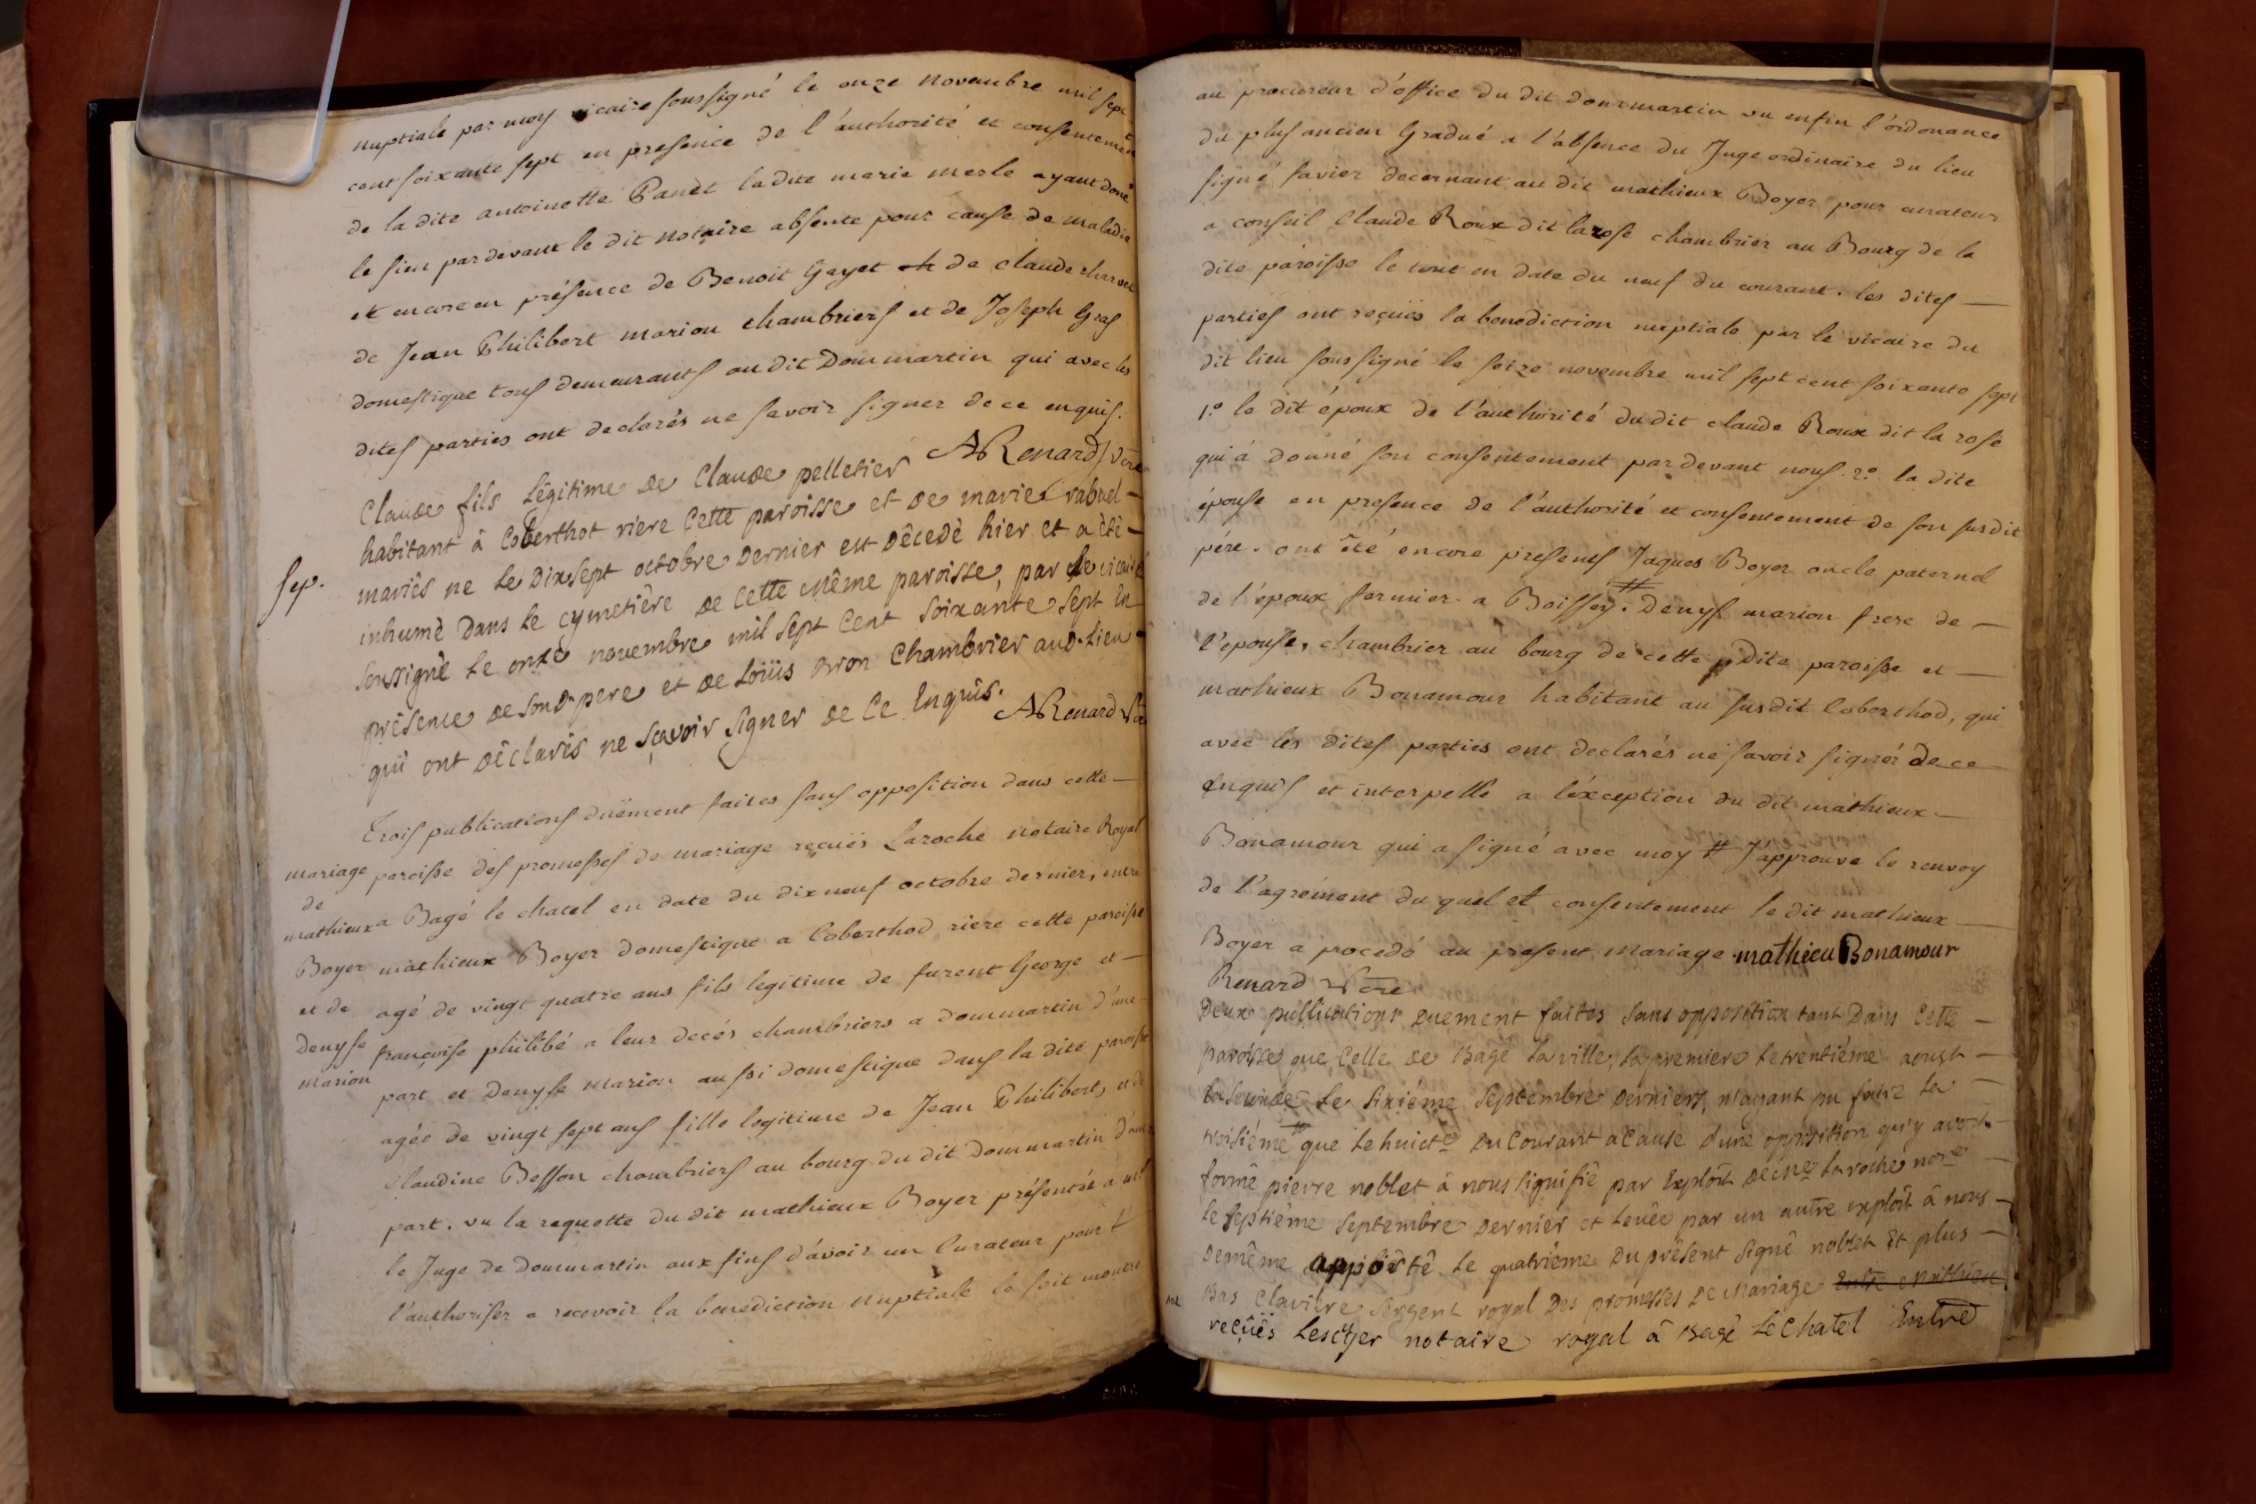 nuptiale par moy vicaire soussigné le onze novembre mil sept
cent soixante sept en presence de l'authorité et consentement
de la dite antoinette Panet ladite marie merle ayant doné
le sien pardevant le dit notaire absente pour cause de maladie
et encore en présence de Benoit Gayet de claude
de Jean Philibert marion chambriers et de Joseph Gras
domestique tous demeurants au dit Dommartin qui avec les
dites parties ont declarés ne savoir signer de ce enquis.
ARenard vere
Claude fils Légitime de Claude pelletier
habitant à Coberthot riere Cette paroisse et de marie rabuel –
sep.
mariés ne le Dixsept octobre Dernier est Décedè hier et a èté –
inhumè Dans le cymetière de Cette même paroisse, par le vicaire
soussignè le onze novembre mil sept Cent soixante sept En
présence de son D. pere et de Loüis Chambrier aud. lieu –
qui ont dèclarés ne sçavoir signer de Ce Enquis.
ARenard
Trois publications duëment faites sans opposition dans cette –
mariage
de
mathieux
Boyer
et de
Denyse
marion
paroisse des promesses de mariage reçuës Laroche notaire Royal
a Bagé le chatel en date du dix neuf octobre dernier, entre
mathieux Boyer domestique a Coberthod riere cette paroisse
agé de vingt quatre ans fils legitime de furent George et –
françoise philibé a leur decés chambriers a dommartin d'une
part et Denyse marion aussi domestique dans la dite paroisse
agée de vingt sept ans fille legitime de Jean Philibert, et de
claudine Besson chambriers au bourg du dit dommartin d'autre
part. vu la requette du dit mathieux Boyer présentée a mr
le Juge de dommartin aux fins d'avoir un Curateur pour l'
l'authoriser a recevoir la benediction nuptiale le soit montré
au procureur d'office du dit dommartin vu enfin l'ordonance
du plus ancien Gradué a l'absence du Juge ordinaire du lieu
signé savier decernant au dit mathieux Boyer pour curateur
a conseil Claude Roux dit larose chambrier au Bourg de la
dite paroisse le tout en date du neuf du courant. les dites –
parties ont reçuës la benediction nuptiale par le vicaire du
dit lieu soussigné le seize novembre mil sept cent soixante sept
1.° le dit époux de l'authorité du dit claude Roux dit la rose
qui à donné son consentement pardevant nous. 2.° la dite
épouse en presence de l'authorité et consentement de son susdit
pére. ont été encore presents Jaques Boyer oncle paternel
de l'époux fermier a Boissey. # Denys marion frere de –
l'epouse, chambrier au bourg de cette dite paroisse et –
mathieux Bonamour habitant au susdit Coberthod, qui
avec les dites parties ont declarés ne savoir signér de ce
enquis et interpellé a l'éxception du dit mathieux –
Bonamour qui a signé avec moy # J'approuve le renvoy
de l'agrément du quel et consentement le dit mathieux –
Boyer a procedé au present mariage. mathieu Bonamour
Renard vere
Deux publications Duement faites sans opposition tant Dans Cette –
paroisse que Celle de Bagé la ville, la premiere le trentième aoust –
la seconde le sixième Septembre Derniers, n'ayant pu faire la –
troisième que le huict.e Du Courant à Cause d'une opposition qu'y avoit
formè pierre noblet â nous signifiè par Exploit laroche
le Septième Septembre Dernier et levée par un autre exploit â nous –
demême apportê le quatrième Du présent signé noblet et plus –
Bas Claviere Sergent royal Des promesses De Mariage Entre Mathieu
reçuës Lescuyer notaire royal â Bagé Le Chatel Entre